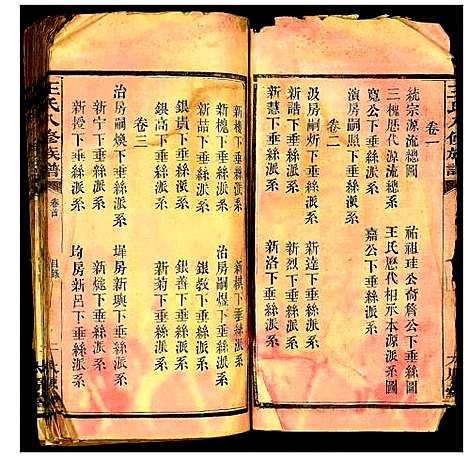 卷一
統宗源流總圖
祐祖珪公裔詹公下垂絲圖
三槐歷代源流總系
王氏歷代相承本源派系圖
寬公下垂絲派系
嘉公下垂絲派系
濱房嗣照下垂絲派系
卷二
汲房嗣炘下垂絲派系
新達下垂絲派系
新誥下垂絲派系
新烈下垂絲派系
新慧下垂絲派系
新洛下垂絲派系
新槐下垂絲派系
新棋下垂絲派系
新槐下垂絲派系
治房嗣煜下垂絲派系
新喆下垂絲派系
銀教下垂絲派系
銀貴下垂絲派系
銀善下垂絲派系
銀高下垂絲派系
新菊下垂絲派系
卷三
治房嗣煥下垂絲派系
墀房新輿下垂絲派系
新宁下垂絲派系
新燧下垂絲派系
新奇下垂絲派系
均房新呂下垂絲派系
王氏八修族譜
卷首
目錄